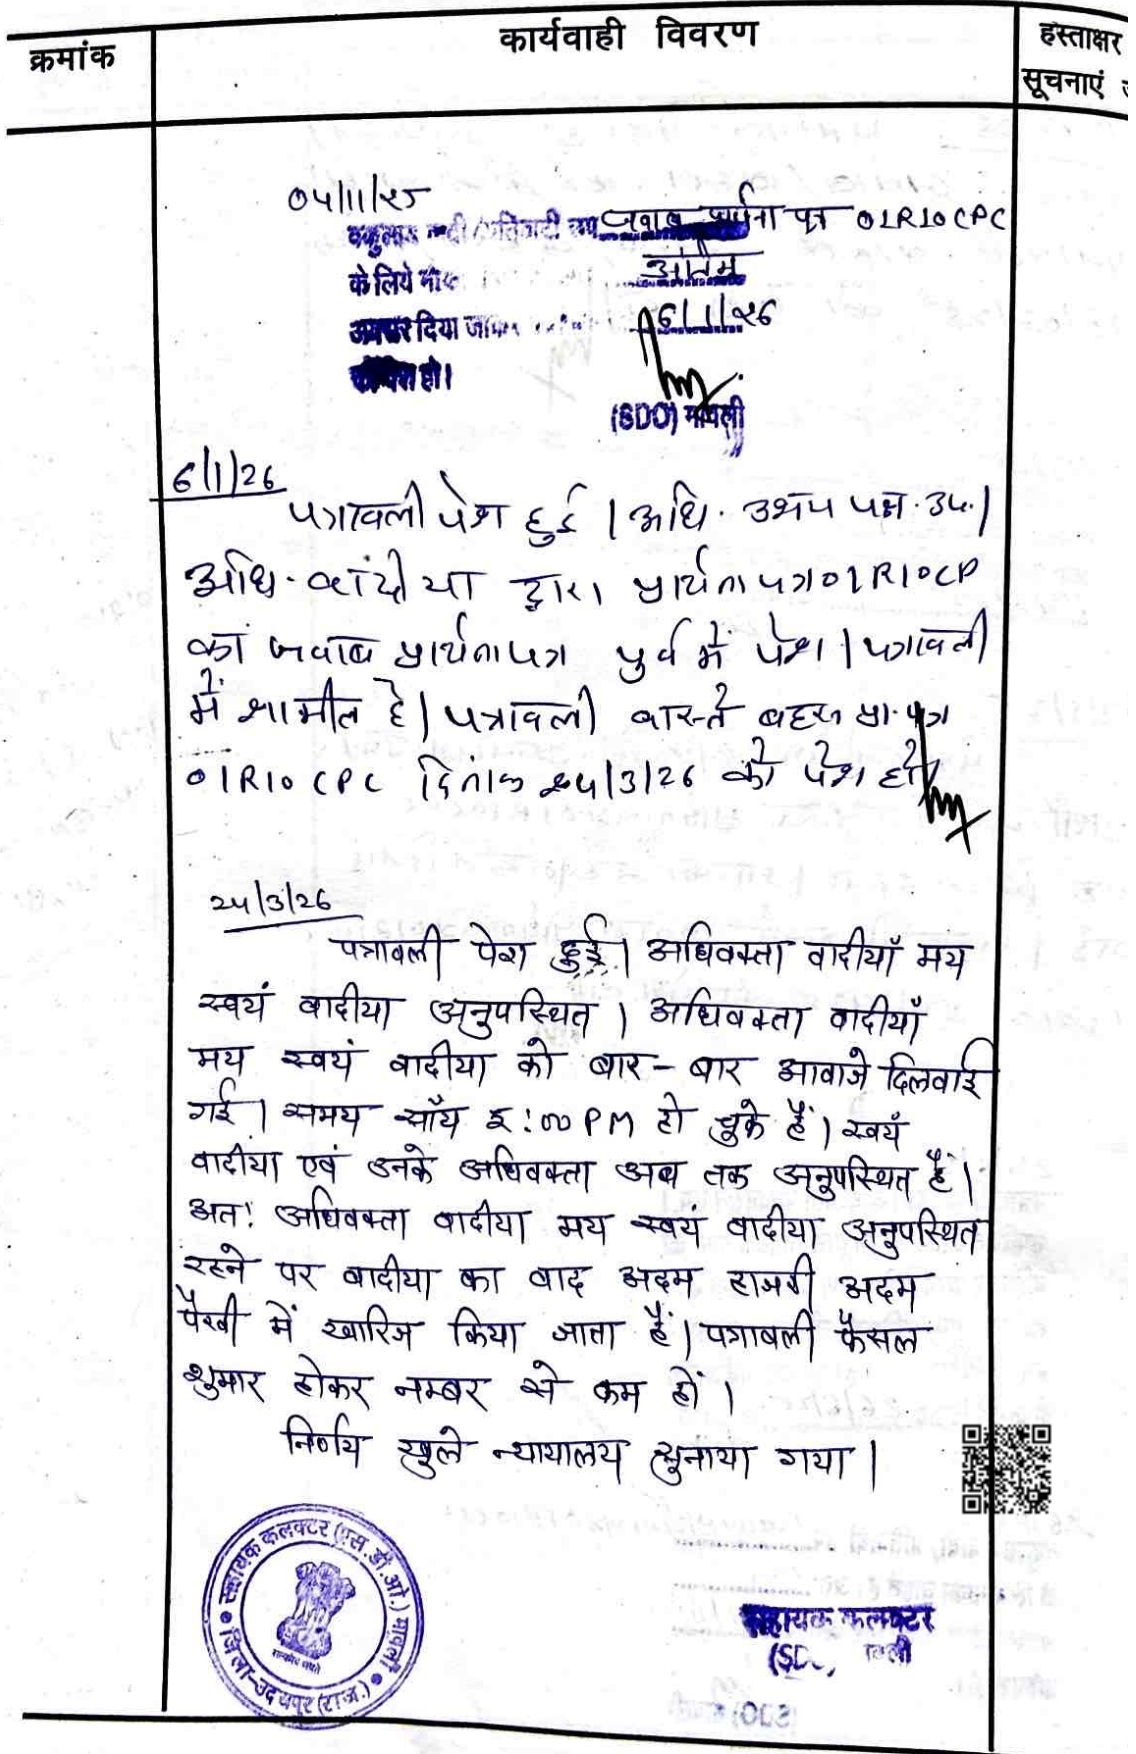 क्रमांक
कार्यवाही विवरण
हस्ताक्षर
सूचनाएं
04/11/25
जवाब प्रार्थना पत्र 01R10CPC
के लिये अंतिम
दिया 6/1/26
हो।
(SDO) मावली
6/1/26
पत्रावली पेश हुई | अधि. उभय पक्ष. उप.|
अधि. वादीया द्वारा प्रार्थना पत्र 01R10CP
का जवाब प्रार्थनापत्र पुर्व में पेश | पत्रावली
में शामील है | पत्रावली वास्ते बहस प्रा. पत्र
01R10 CPC दिनांक 24/3/26 को पेश हो
24/3/26
पत्रावली पेश हुई | अधिवक्ता वादीयाँ मय
स्वयं वादीया अनुपस्थित | अधिवक्ता वादीयाँ
मय स्वयं वादीया को बार-बार आवाजे दिलवाई
गई | समय साँय :00 PM हो चुके हैं | स्वयं
वादीया एवं उनके अधिवक्ता अब तक अनुपस्थित हैं |
अतः अधिवक्ता वादीया मय स्वयं वादीया अनुपस्थित
रहने पर वादीया का वाद अदम हाजरी अदम
पैरवी में खारिज किया जाता हैं | पत्रावली फैसल
शुमार होकर नम्बर से कम हों |
निर्णय खुले न्यायालय सुनाया गया |
सहायक कलक्टर (एस.डी.ओ.) मावली
सत्यमेव जयते
जिला-उदयपुर (राज.)
सहायक कलक्टर